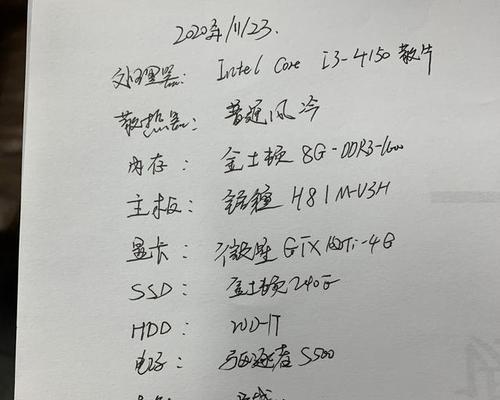 2020年11/23.
处理器: Intel Core i3-4150 散片
散热器: 普通风冷
内存: 金士顿 8G-DDR3-1600
主板: 铭瑄 H81M-V3H
显卡: 微星 GTX 1050Ti-4G
SSD: 金士顿240G
HDD: WD-1T
电子: 驱逐者S500